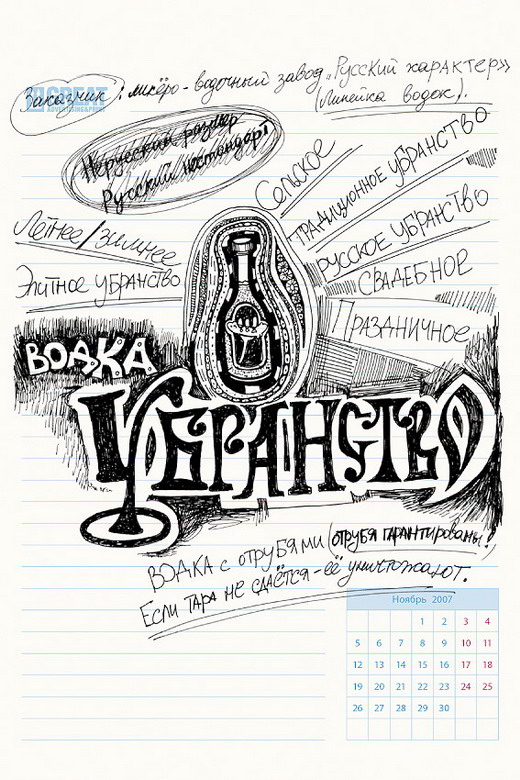 Заказчик: ликёро-водочный завод „Русский характер»
(Линейка водок).
GREAT
ADVERTISING PRINT
Нерусский размер
Русский нестандарт
Сельское
Традиционное убранство
Летнее/зимнее
русское убранство
Элитное убранство
Свадебное
Праздничное
ВОДКА
Убранство
ВОДКА с отрубями (отрубя гарантированы!)
Если тара не сдаётся - её уничтожают.
Ноябрь 2007
1 2 3 4
5 6 7 8 9 10 11
12 13 14 15 16 17 18
19 20 21 22 23 24 25
26 27 28 29 30